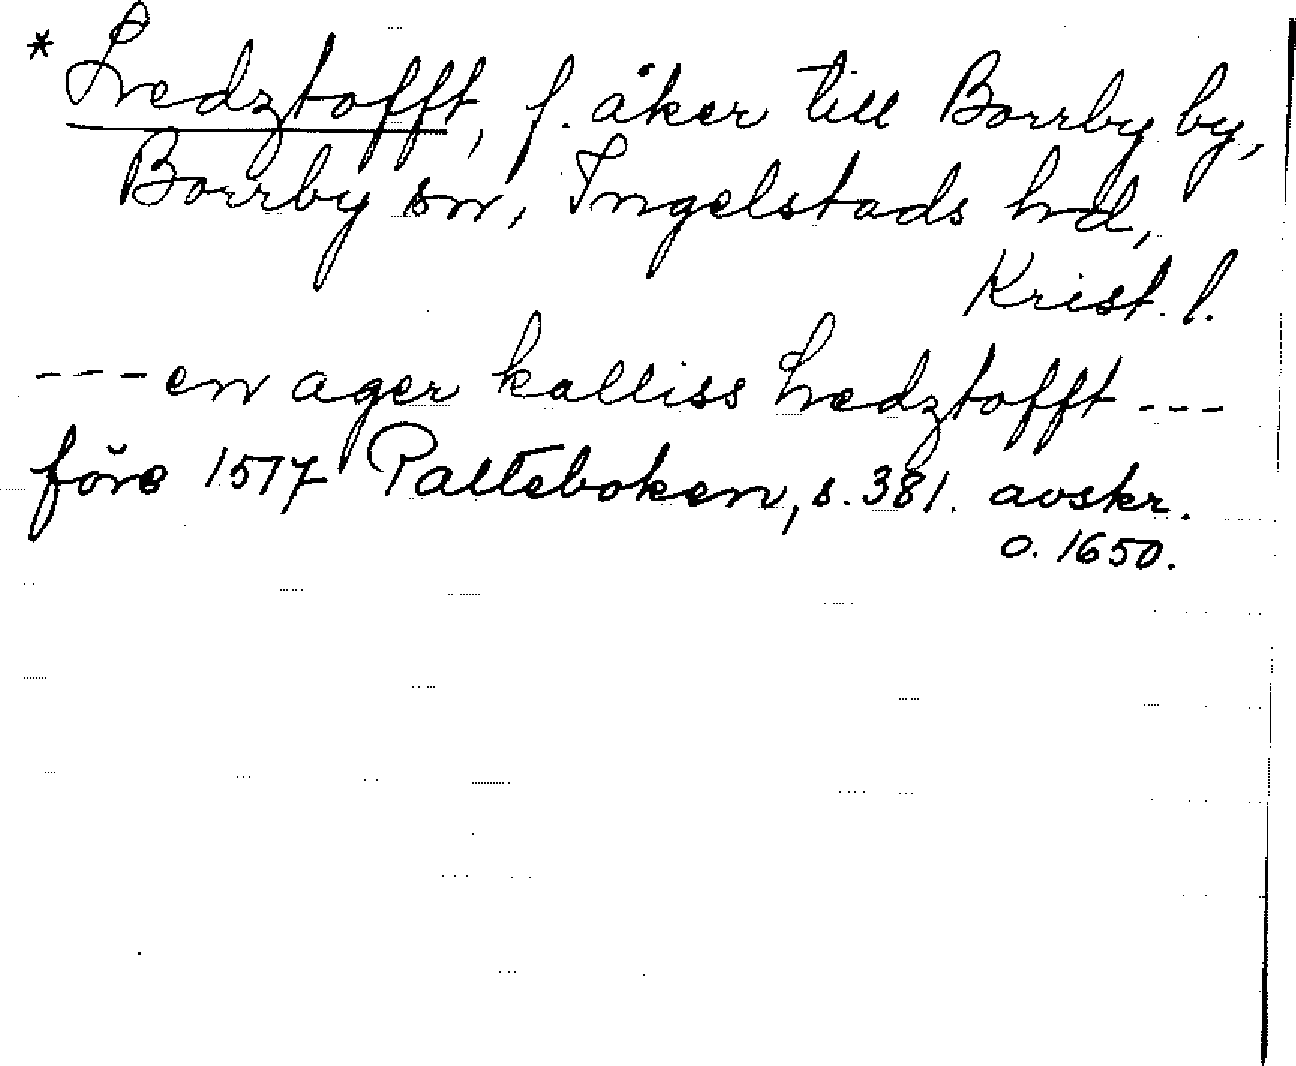 * Ledztofft, f. åker till Borrby by,
Borrby sn, Ingelstads hrd,
Krist. l.
--- en ager kalliss Ledztofft ---
före 1517 Palteboken, s. 381. avskr.
o. 1650.